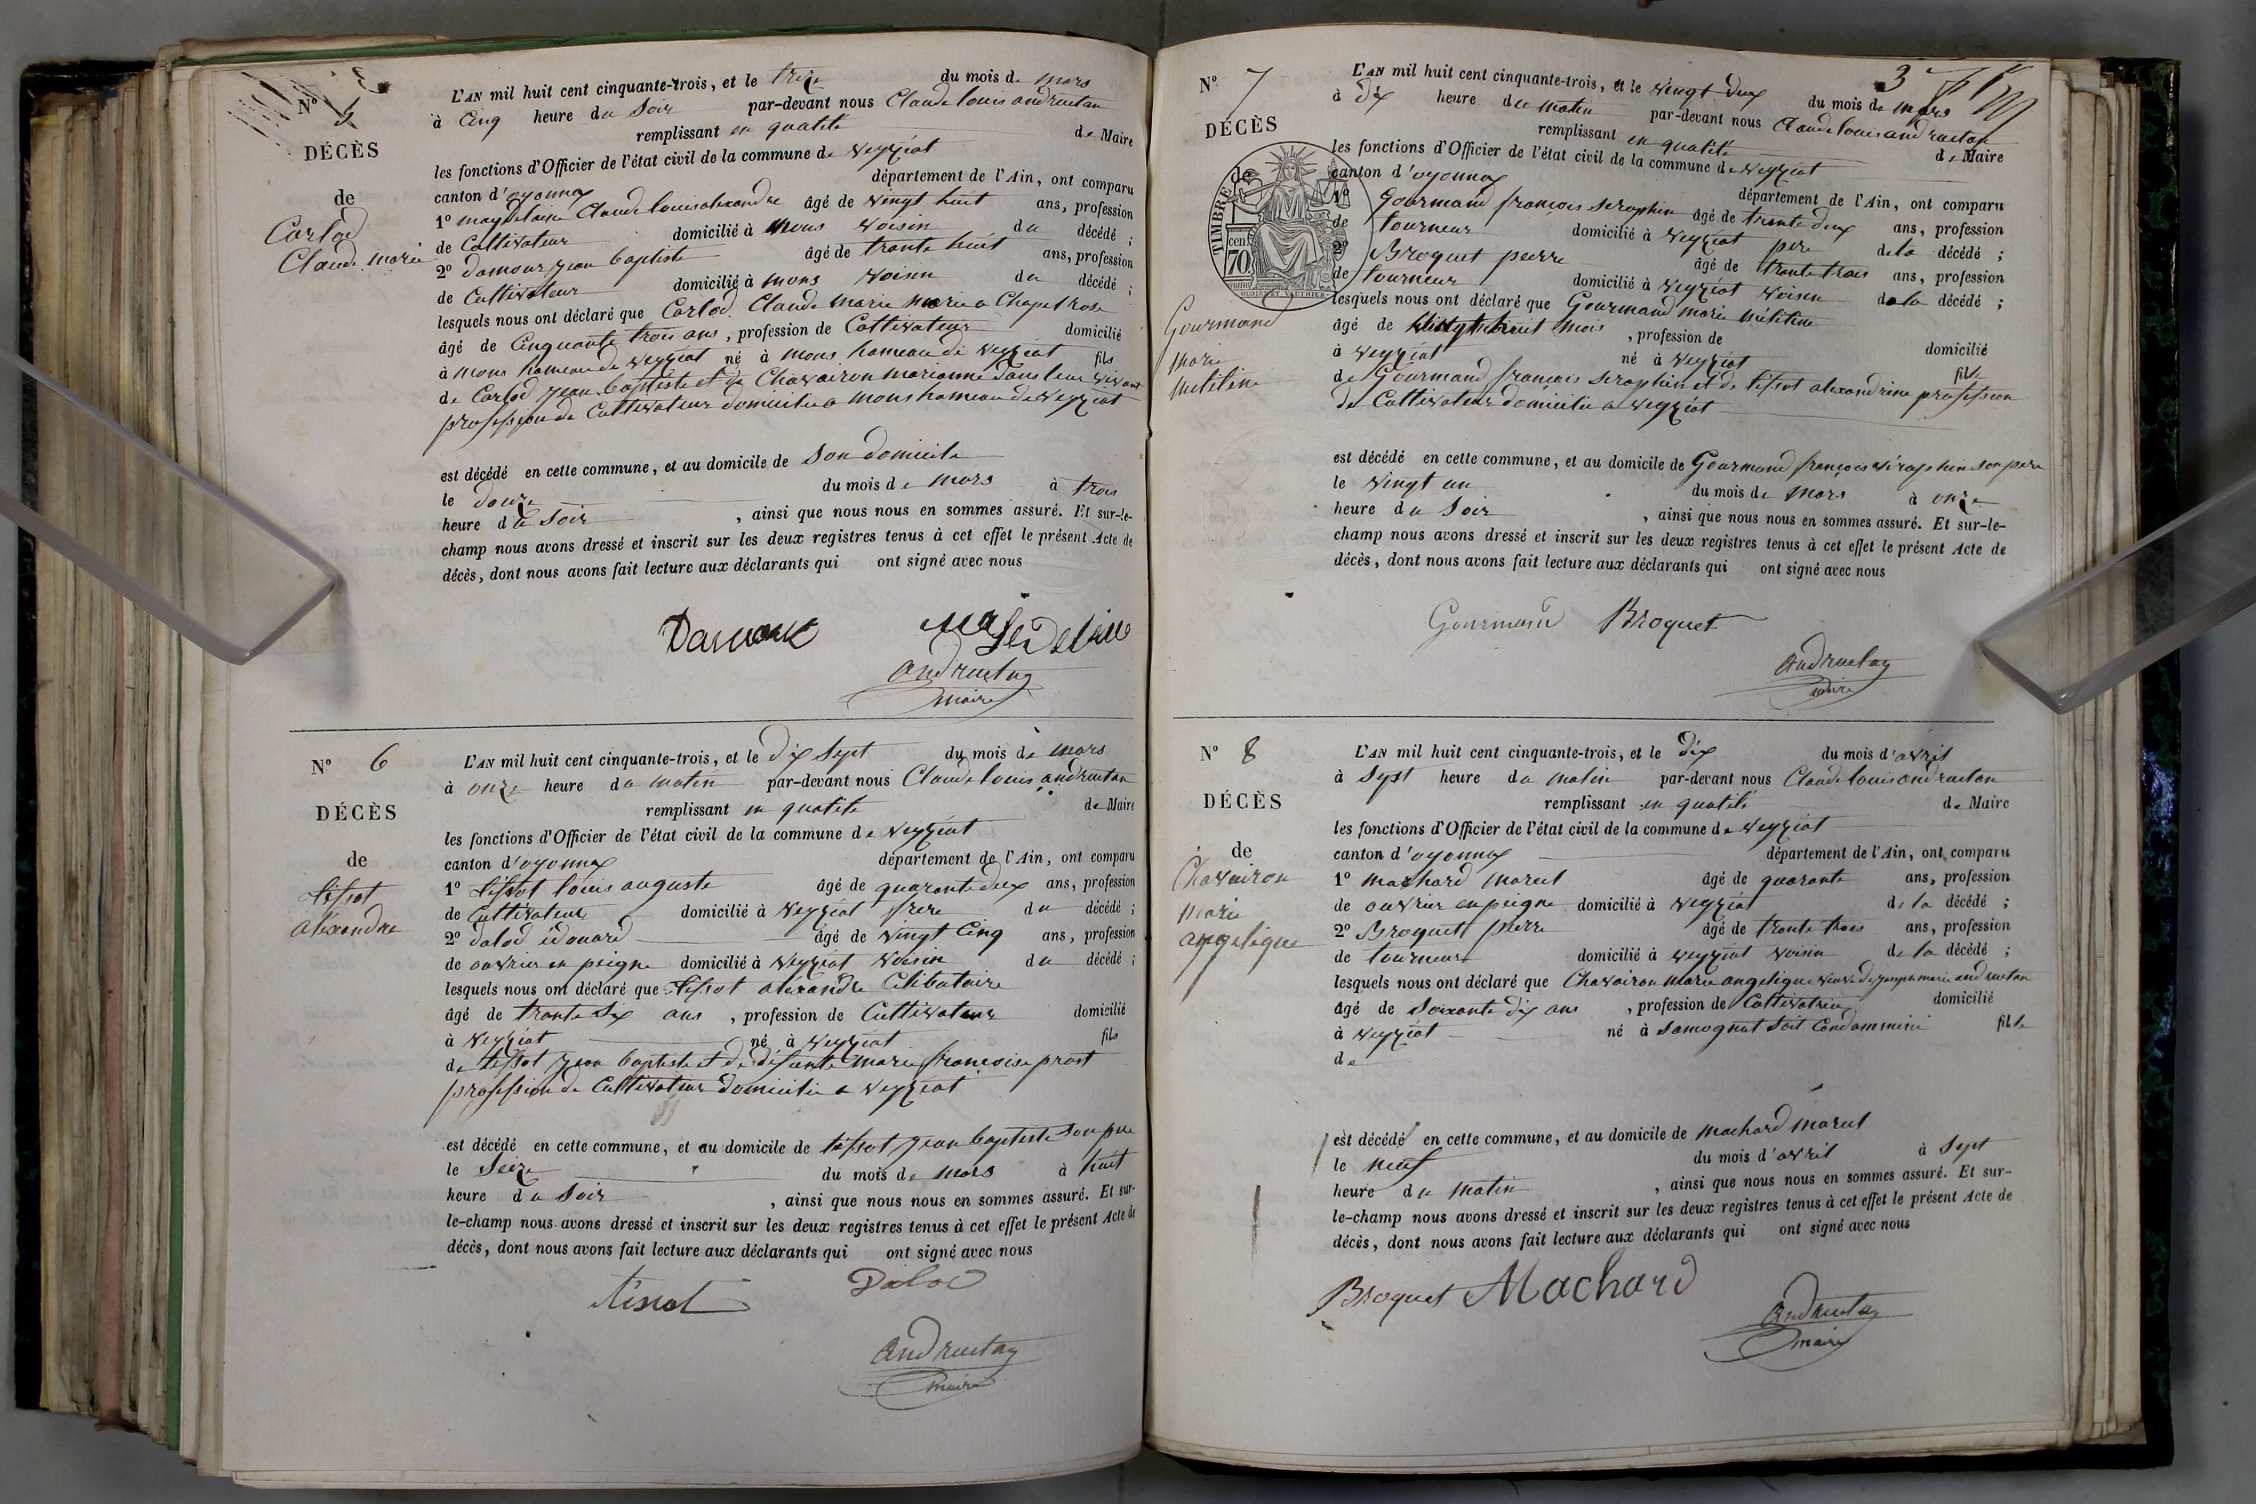 N° 5
DÉCÈS
de
Carlod
Claude marie
L'AN mil huit cent cinquante-trois, et le treize du mois de mars
à Cinq heure du Soir par-devant nous Claude louis andruetan
remplissant en qualité de Maire
les fonctions d'Officier de l'état civil de la commune de veyziat
canton d'oyonnax département de l'Ain, ont comparu
1° Claude louis alexandre âgé de vingt huit ans, profession
de Cultivateur domicilié à mons voisin du décédé ;
2° damour jean baptiste âgé de trante huit ans, profession
de Cultivateur domicilié à mons voisin du décédé ;
lesquels nous ont déclaré que Carlod Claude marie marie a Chapel rose
âgé de Cinquante trois ans, profession de Cultivateur domicilié
à mons hameau de veyziat né à mons hameau de veyziat fils
de Carlod jean baptiste et de Chavairon marianne dans leur vivant
profession de Cultivateur domicilié a mons hameau de veyziat
est décédé en cette commune, et au domicile de son domicile
le douze du mois de mars à trois
heure du soir, ainsi que nous nous en sommes assuré. Et sur-le-
champ nous avons dressé et inscrit sur les deux registres tenus à cet effet le présent Acte de
décès, dont nous avons fait lecture aux déclarants qui ont signé avec nous
Damour
andruetan
maire
N° 6
DÉCÈS
de
tissot
alexandre
L'AN mil huit cent cinquante-trois, et le dix sept du mois de mars
à onze heure du matin par-devant nous Claude louis andruetan
remplissant en qualité de Maire
les fonctions d'Officier de l'état civil de la commune de veyziat
canton d'oyonnax département de l'Ain, ont comparu
1° tissot louis auguste âgé de quarante deux ans, profession
de Cultivateur domicilié à veyziat frere du décédé ;
2° dalod édouard âgé de vingt Cinq ans, profession
de ouvrier en peigne domicilié à veyziat voisin du décédé ;
lesquels nous ont déclaré que tissot alexandre Célibataire
âgé de trante Six ans, profession de Cultivateur domicilié
à veyziat né à veyziat fils
de tissot jean baptiste et de défunte marie françoise prost
profession de Cultivateur domicilié a veyziat
est décédé en cette commune, et au domicile de tissot jean baptiste son pere
le Seize du mois de mars à huit
heure du Soir, ainsi que nous nous en sommes assuré. Et sur-
le-champ nous avons dressé et inscrit sur les deux registres tenus à cet effet le présent Acte de
décès, dont nous avons fait lecture aux déclarants qui ont signé avec nous
tissot Dalod
andruetan
maire
3
N° 7
DÉCÈS
de
TIMBRE
70 cent
Gourmand
marie
mélitine
L'AN mil huit cent cinquante-trois, et le vingt deux du mois de mars
à dix heure du matin par-devant nous Claude louis andruetan
remplissant en qualité de Maire
les fonctions d'Officier de l'état civil de la commune de veyziat
canton d'oyonnax département de l'Ain, ont comparu
1° Gourmand françois seraphin âgé de trante deux ans, profession
de tourneur domicilié à veyziat pere de la décédé ;
2° Broquet pierre âgé de trante trois ans, profession
de tourneur domicilié à veyziat voisin de la décédé ;
lesquels nous ont déclaré que Gourmand marie mélitine
âgé de mois, profession de domicilié
à veyziat né à veyziat fille
de Gourmand françois seraphin et de tissot alexandrine profession
de Cultivateur domicilié a veyziat
est décédé en cette commune, et au domicile de Gourmand françois séraphin son pere
le vingt un du mois de mars à onze
heure du Soir, ainsi que nous nous en sommes assuré. Et sur-le-
champ nous avons dressé et inscrit sur les deux registres tenus à cet effet le présent Acte de
décès, dont nous avons fait lecture aux déclarants qui ont signé avec nous
Gourmand Broquet
andruetan
maire
N° 8
DÉCÈS
de
Chavairon
marie
angelique
L'AN mil huit cent cinquante-trois, et le dix du mois d'avril
à sept heure du matin par-devant nous Claude louis andruetan
remplissant en qualité de Maire
les fonctions d'Officier de l'état civil de la commune de veyziat
canton d'oyonnax département de l'Ain, ont comparu
1° machard marcel âgé de quarante ans, profession
de ouvrier en peigne domicilié à veyziat de la décédé ;
2° Broquet pierre âgé de trante trois ans, profession
de tourneur domicilié à veyziat voisin de la décédé ;
lesquels nous ont déclaré que Chavairon marie angelique veuve de joseph marie andruetan
âgé de soixante dix ans, profession de Cultivatrice domicilié
à veyziat né à samognat soit Condamnine fille
de
est décédé en cette commune, et au domicile de machard marcel
le neuf du mois d'avril à Sept
heure du matin, ainsi que nous nous en sommes assuré. Et sur-
le-champ nous avons dressé et inscrit sur les deux registres tenus à cet effet le présent Acte de
décès, dont nous avons fait lecture aux déclarants qui ont signé avec nous
Broquet Machard
andruetan
maire